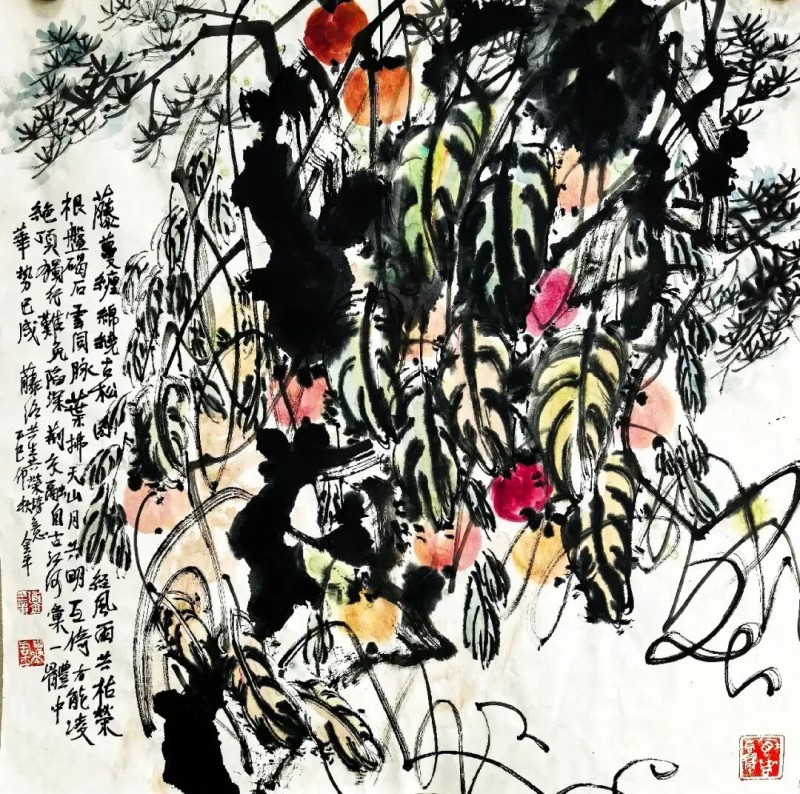 藤蔓纏綿繞古松經風雨共枯榮
根盤碣石雲同脉葉拂天山月共明互倚方能凌
絕頂獨行難免陷深荊交融自古江河彙一體中
華勢已成藤松共生共榮詩意
乙巳仲秋金平